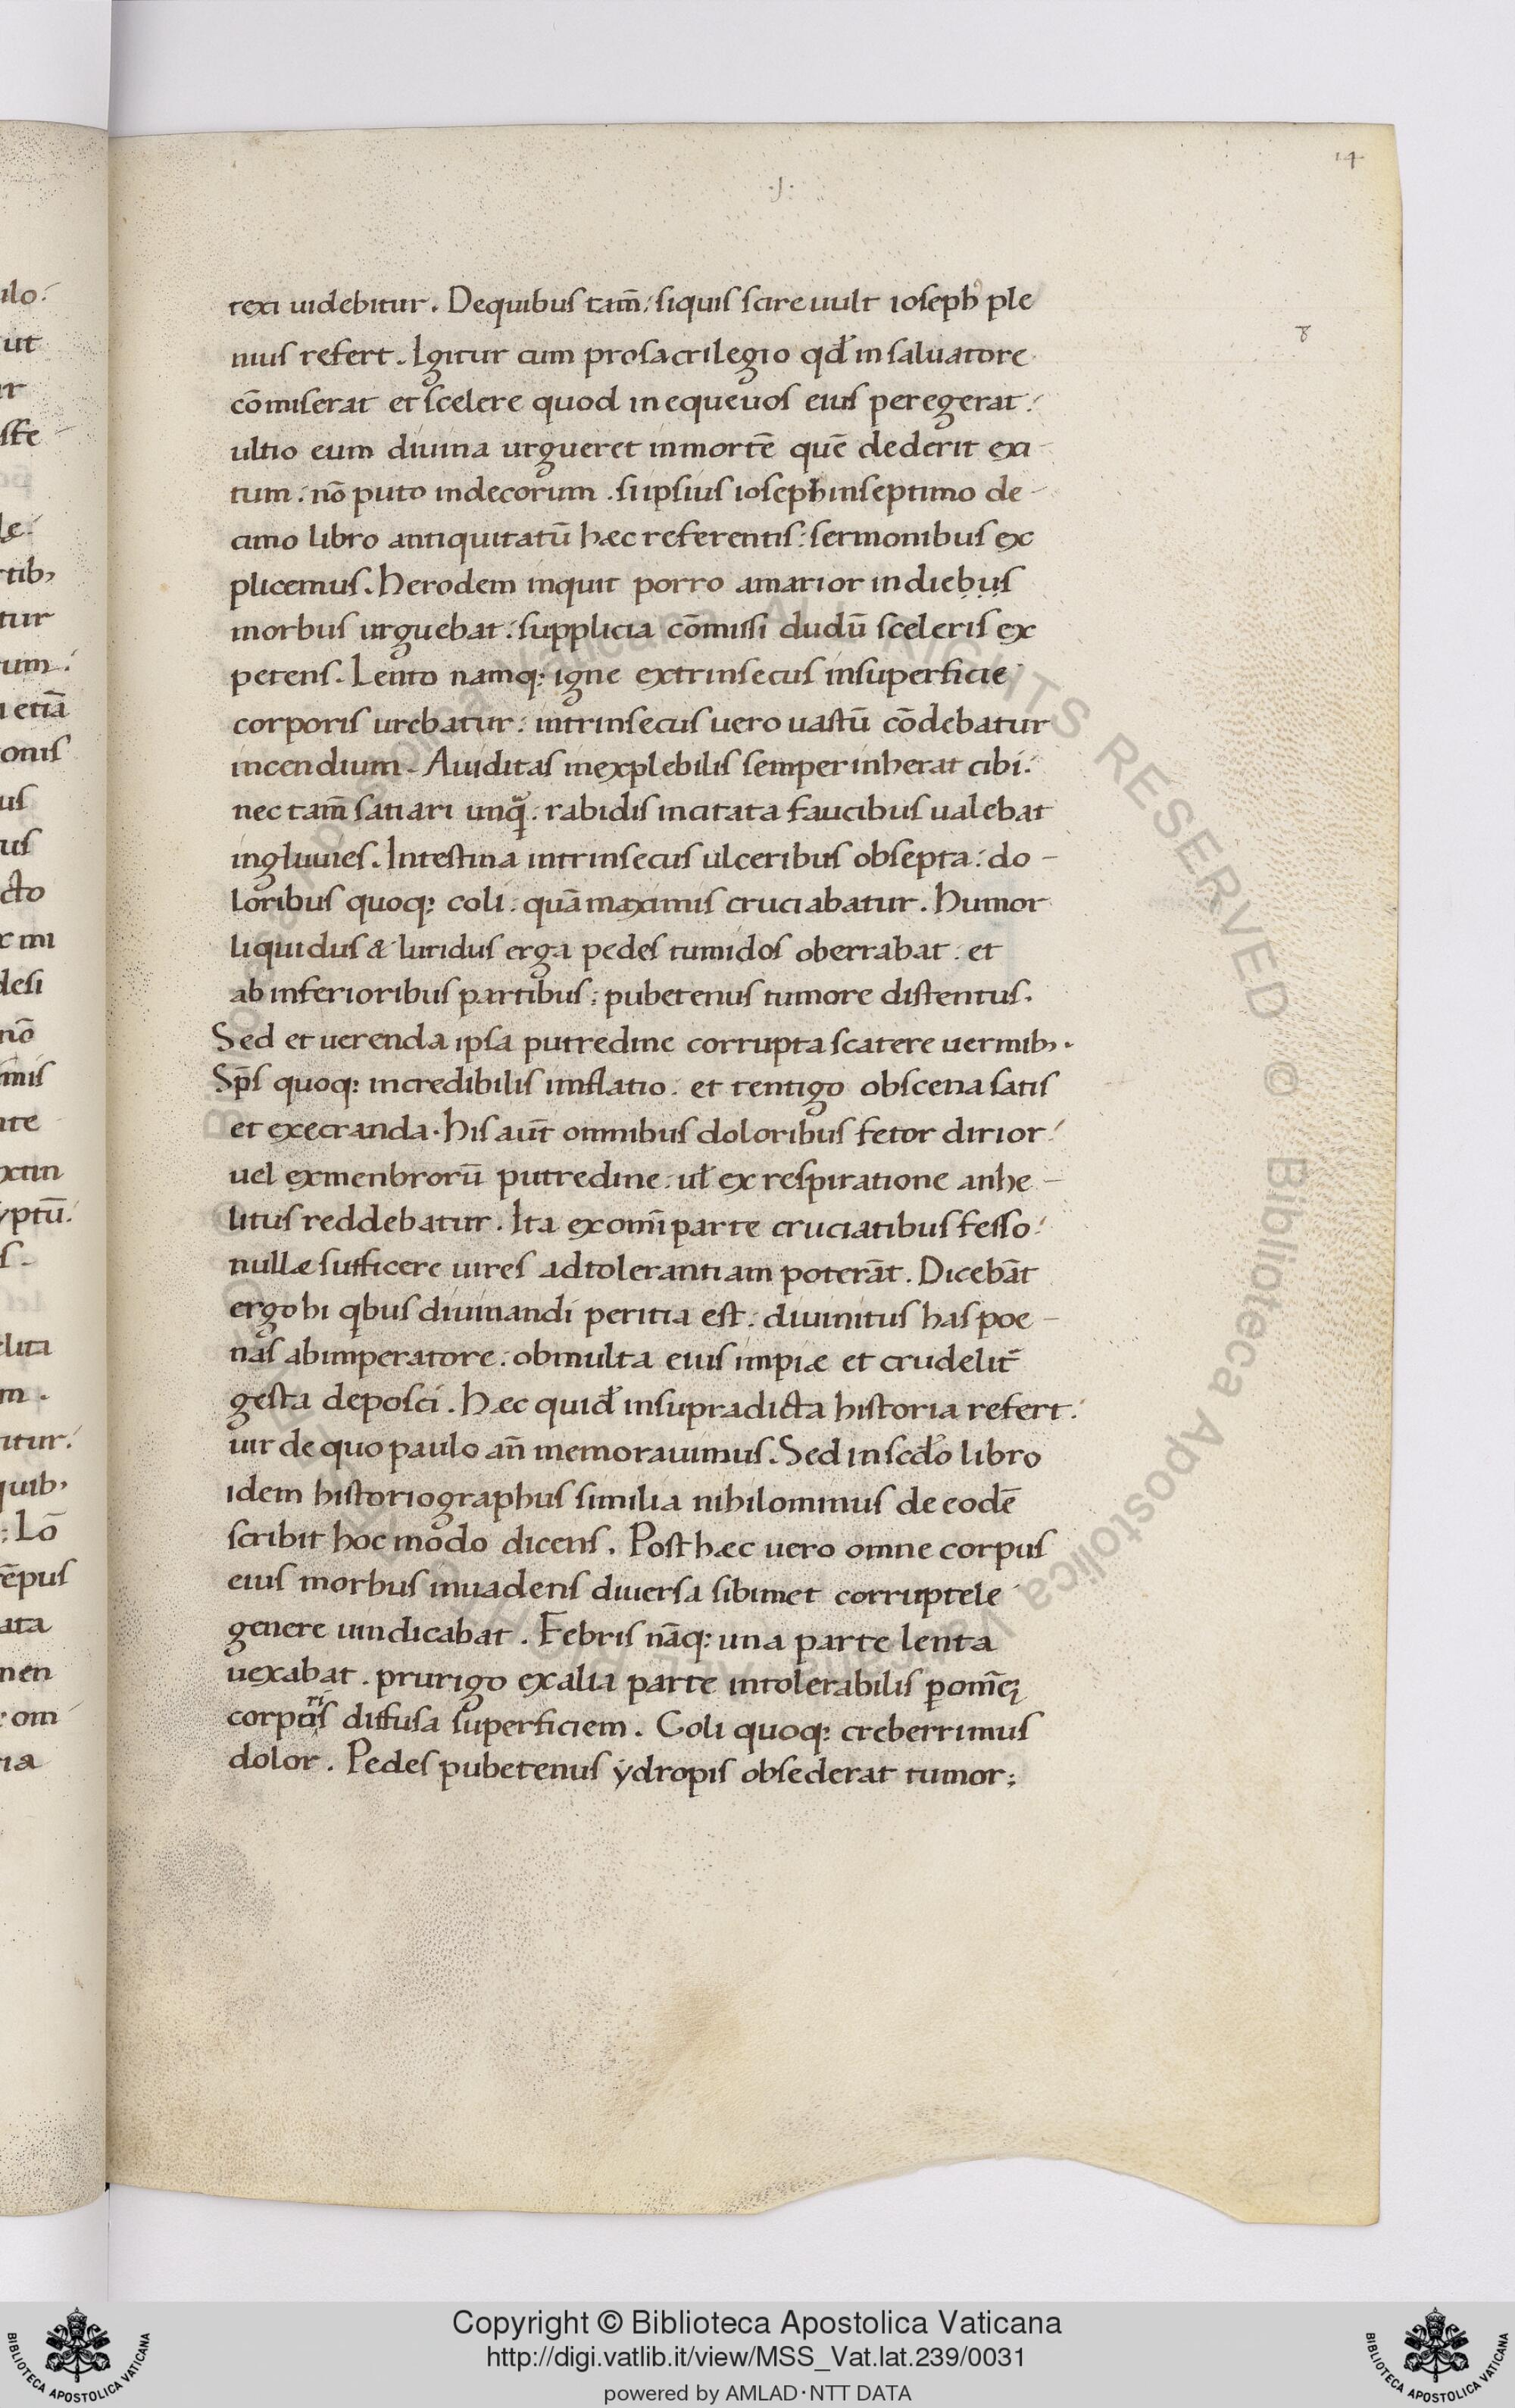 14
.I.
texi uidebitur. Dequibus tam̄. siquis scire uult ioseph ple
nius refert. Igitur cum prosacrilegio qđ in saluatore
cōmiserat et scelere quod in equeuos eius peregerat.
ultio eum diuina urgueret inmortē quē dederit exi-
tum. nō puto indecorum. si ipsius ioseph inseptimo de-
cimo libro antiquitatū hæc referentis. sermonibus ex
plicemus. herodem inquit porro amarior indiebus
morbus urguebat. supplicia cōmissi dudū sceleris ex
petens. Lento namq: igne extrinsecus insuperficie
corporis urebatur. intrinsecus uero uastū cōdebatur
incendium. Auiditas inexplebilis semper inherat cibi.
nec tam̄ satiari unqᷓ. rabidis incitata faucibus ualebat
ingluuies. Intestina intrinsecus ulceribus obsepta. do-
loribus quoq: coli. quā maximis cruciabatur. Humor
liquidus & luridus erga pedes tumidos oberrabat. et
ab inferioribus partibus; pubetenus tumore distentus.
Sed et uerenda ipsa putredine corrupta scatere uermib;.
Sp̄s quoq: incredibilis imflatio. et tentigo obscena satis
et execranda. his aut̄ omnibus doloribus fetor dirior.
uel exmenbrorū putredine. ul̄ ex respiratione anhe-
litus reddebatur. Ita ex om̄i parte cruciatibus fesso.
nullæ sufficere uires adtolerantiam poterāt. Dicebāt
ergo hi qibus diuinandi peritia est. diuinitus has poe-
nas abimperatore. obmulta eius impiæ et crudelit̄
gesta deposci. Hæc quid̄ insupradicta historia refert.
uir de quo paulo an̄ memorauimus. Sed in scd̄o libro
idem historiographus similia nihilominus de eodē
scribit hoc modo dicens. Post hæc uero omne corpus
eius morbus inuadens diuersa sibimet corruptele
genere uindicabat. Febris nāq: una parte lenta
uexabat. prurigo exalia parte intolerabilis ꝑ om̄eꝫ
corporis diffusa superficiem. Coli quoq: creberrimus
dolor. Pedes pubetenus ẏdropis obsederat tumor;
Copyright © Biblioteca Apostolica Vaticana
http://digi.vatlib.it/view/MSS_Vat.lat.239/0031
powered by AMLAD·NTT DATA